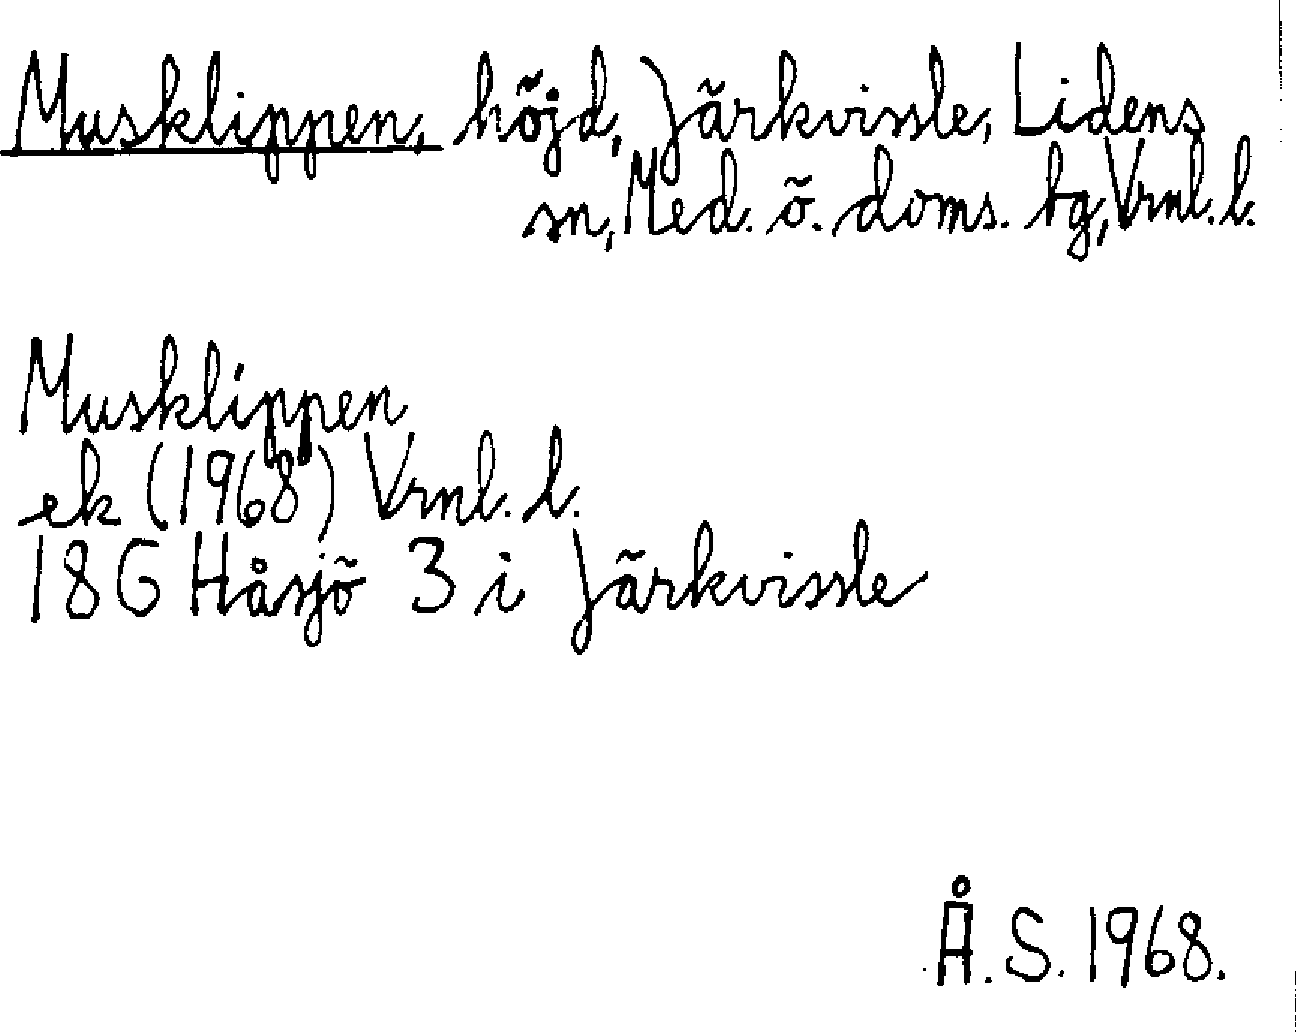 Musklippen, höjd, Järkvissle, Lidens
sn, Med. ö. doms. tg, Vrnl. l.
Musklippen
ek (1968) Vrnl. l.
18G Håsjö 3 i Järkvissle
Å. S. 1968.